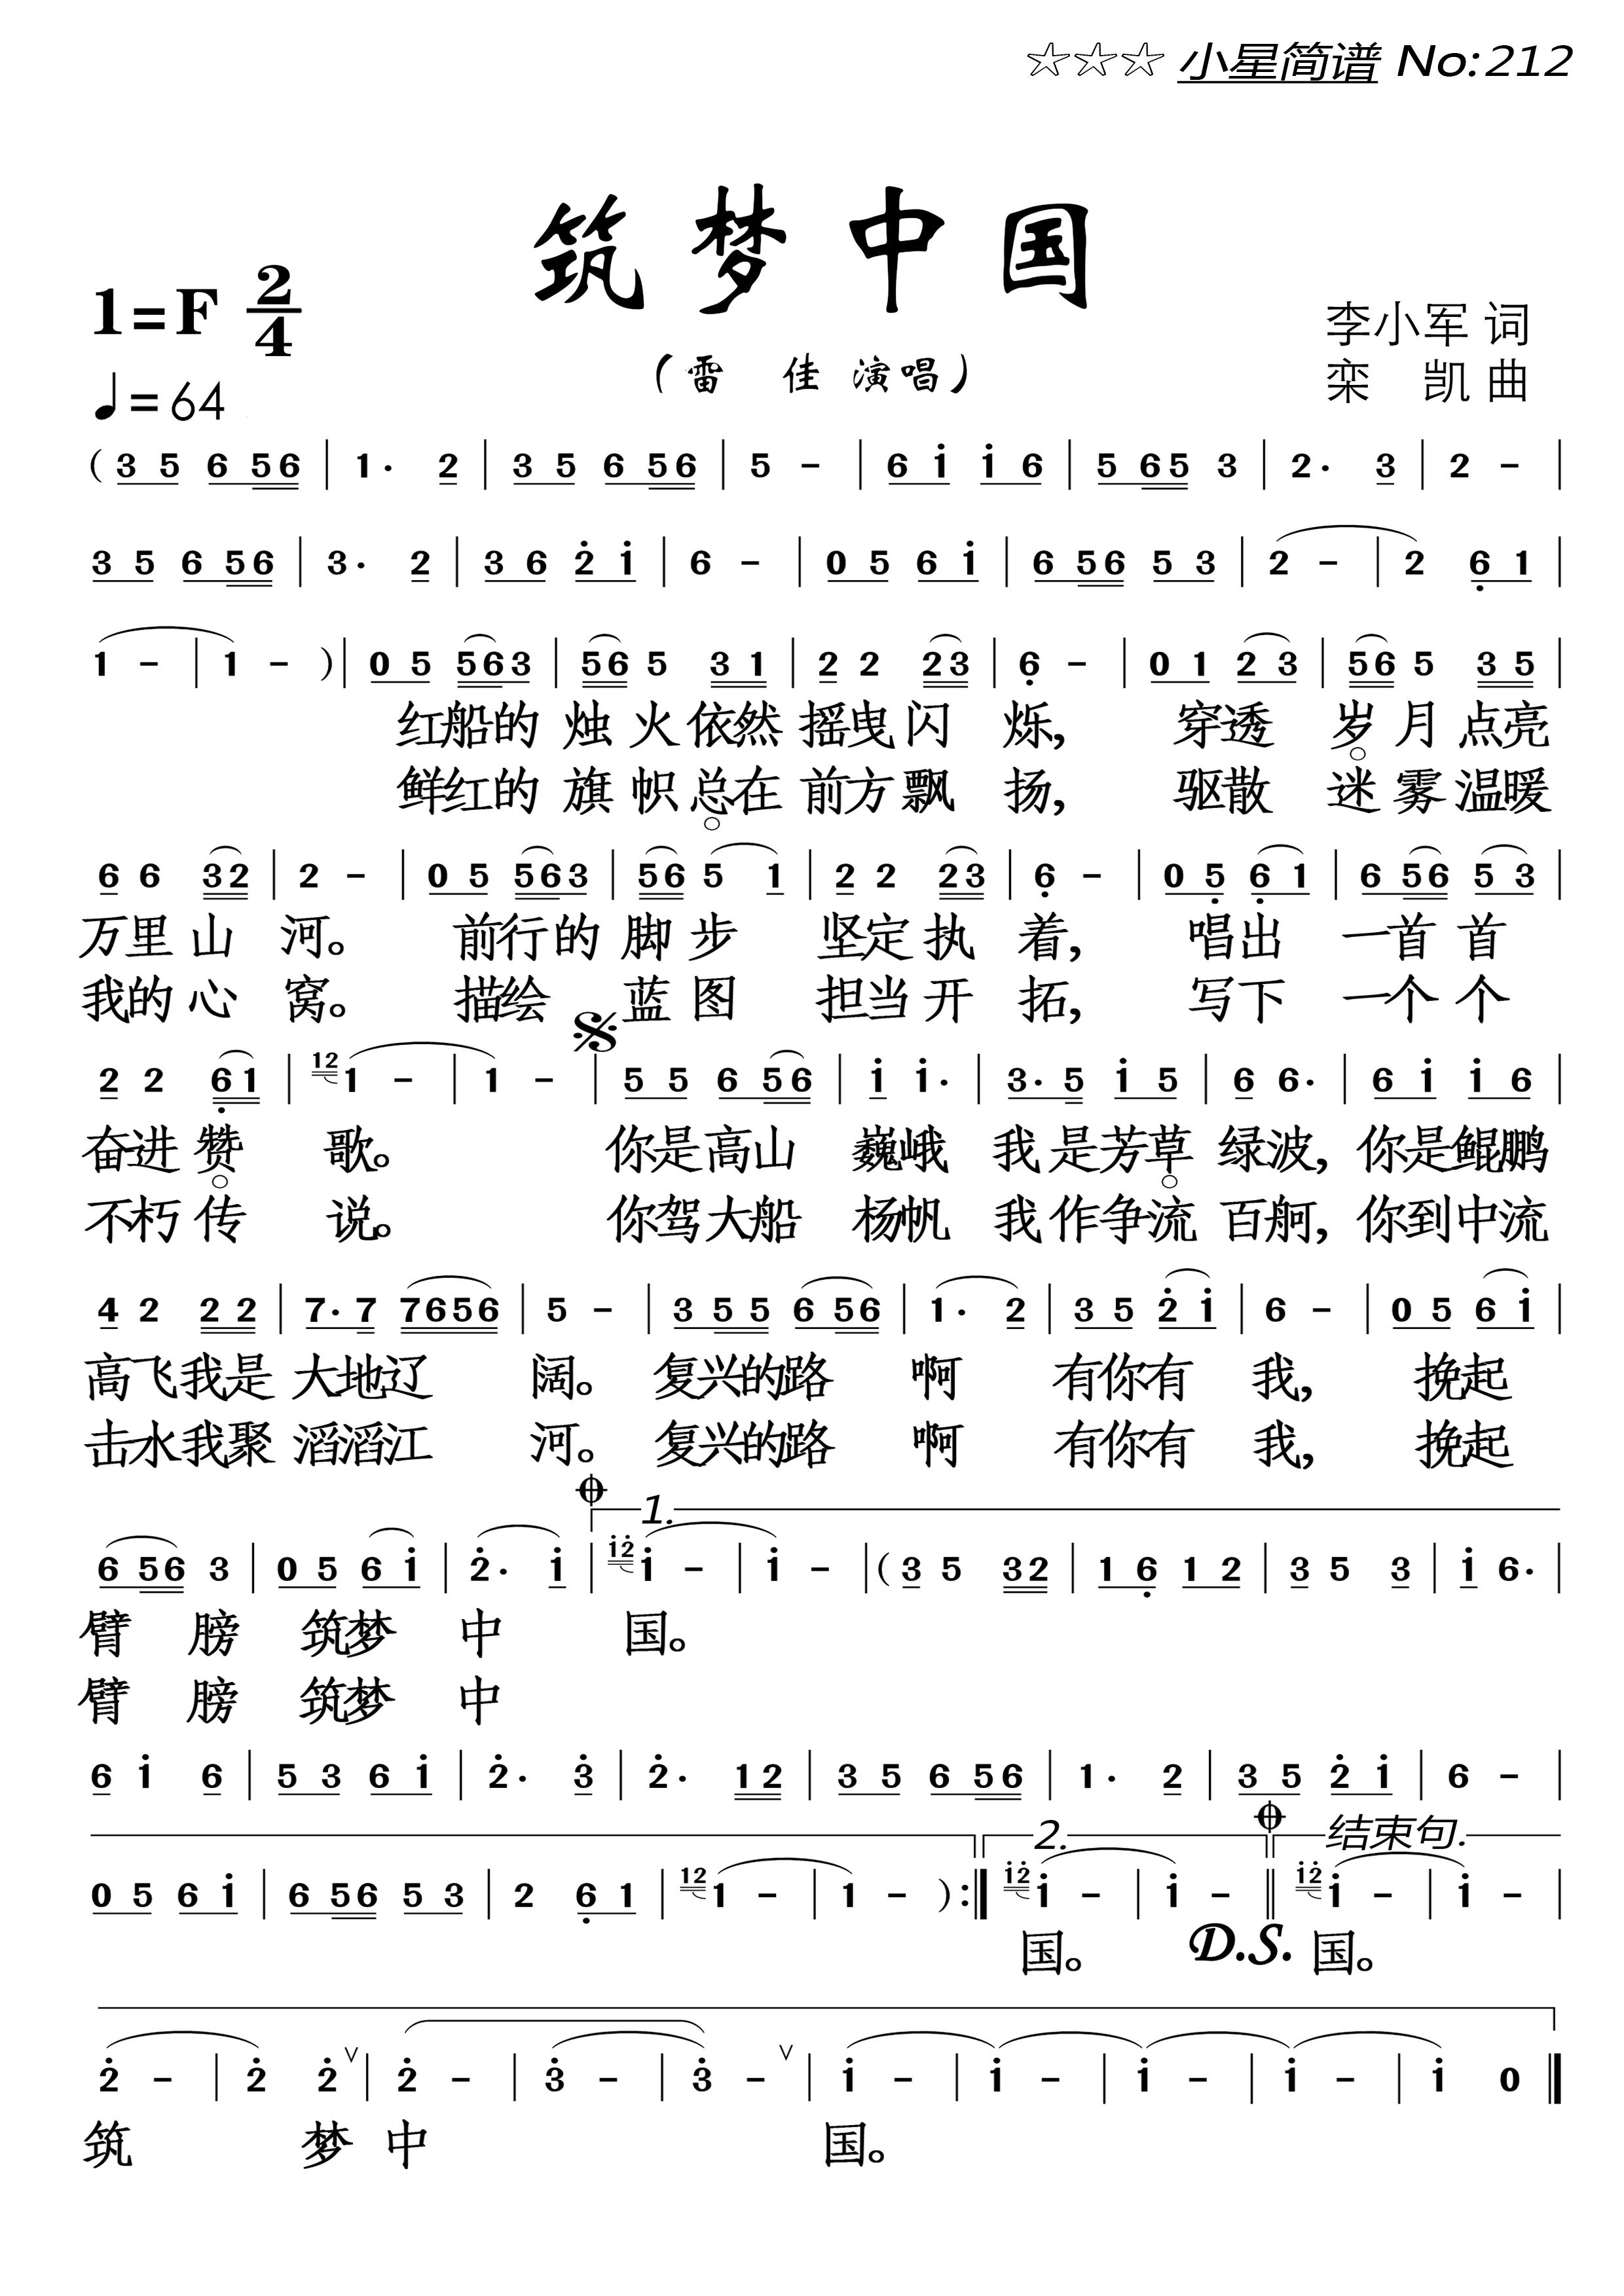 ☆☆☆ 小星简谱 No:212
筑梦中国
1=F 2/4
李小军 词
(雷 佳 演唱)
栾 凯 曲
♩=64
(3 5 6 56 | 1· 2 | 3 5 6 56 | 5 – | 6 i i 6 | 5 65 3 | 2· 3 | 2 – |
3 5 6 56 | 3· 2 | 3 6 2̇ i | 6 – | 0 5 6 i | 6 56 5 3 | 2 – | 2 6̣ 1 |
1 – | 1 – )| 0 5 563 | 56 5 3 1 | 2 2 23 | 6̣ – | 0 1 2 3 | 56 5 3 5 |
红船的 烛 火 依然 摇曳 闪 烁, 穿透 岁 月 点亮
鲜红的 旗 帜 总在 前方 飘 扬, 驱散 迷 雾 温暖
6 6 32 | 2 – | 0 5 563 | 56 5 1 | 2 2 23 | 6̣ – | 0 5̣ 6̣ 1 | 6 56 5 3 |
万里 山 河。 前行的 脚 步 坚定 执 着, 唱出 一首 首
我的 心 窝。 描绘 蓝 图 担当 开 拓, 写下 一个 个
2 2 6̣1 | 12 1 – | 1 – | 5 5 6 56 | i i· | 3· 5 i 5 | 6 6· | 6 i i 6 |
奋进 赞 歌。 你是高山 巍峨 我 是芳草 绿波, 你是鲲鹏
不朽 传 说。 你驾大船 杨帆 我 作争流 百舸, 你到中流
4 2 2 2 | 7· 7 7656 | 5 – | 3 5 5 6 56 | 1· 2 | 3 5 2̇ i | 6 – | 0 5 6 i |
高飞我是 大地辽 阔。 复兴的路 啊 有你有 我, 挽起
击水我聚 滔滔江 河。 复兴的路 啊 有你有 我, 挽起
1.
6 56 3 | 0 5 6 i | 2̇· i | i2̇ i – | i – |(3 5 32 | 1 6̣ 1 2 | 3 5 3 | i 6· |
臂 膀 筑梦 中 国。
臂 膀 筑梦 中
6 i 6 | 5 3 6 i | 2̇· 3̇ | 2̇· 12 | 3 5 6 56 | 1· 2 | 3 5 2̇ i | 6 – |
2. 结束句.
0 5 6 i | 6 56 5 3 | 2 6̣ 1 | 12 1 – | 1 – ):‖ i2̇ i – | i – ‖ i2̇ i – | i – |
国。 D.S. 国。
2̇ – | 2̇ 2̇ ∨| 2̇ – | 3̇ – | 3̇ – ∨| i – | i – | i – | i – | i 0 ‖
筑 梦 中 国。